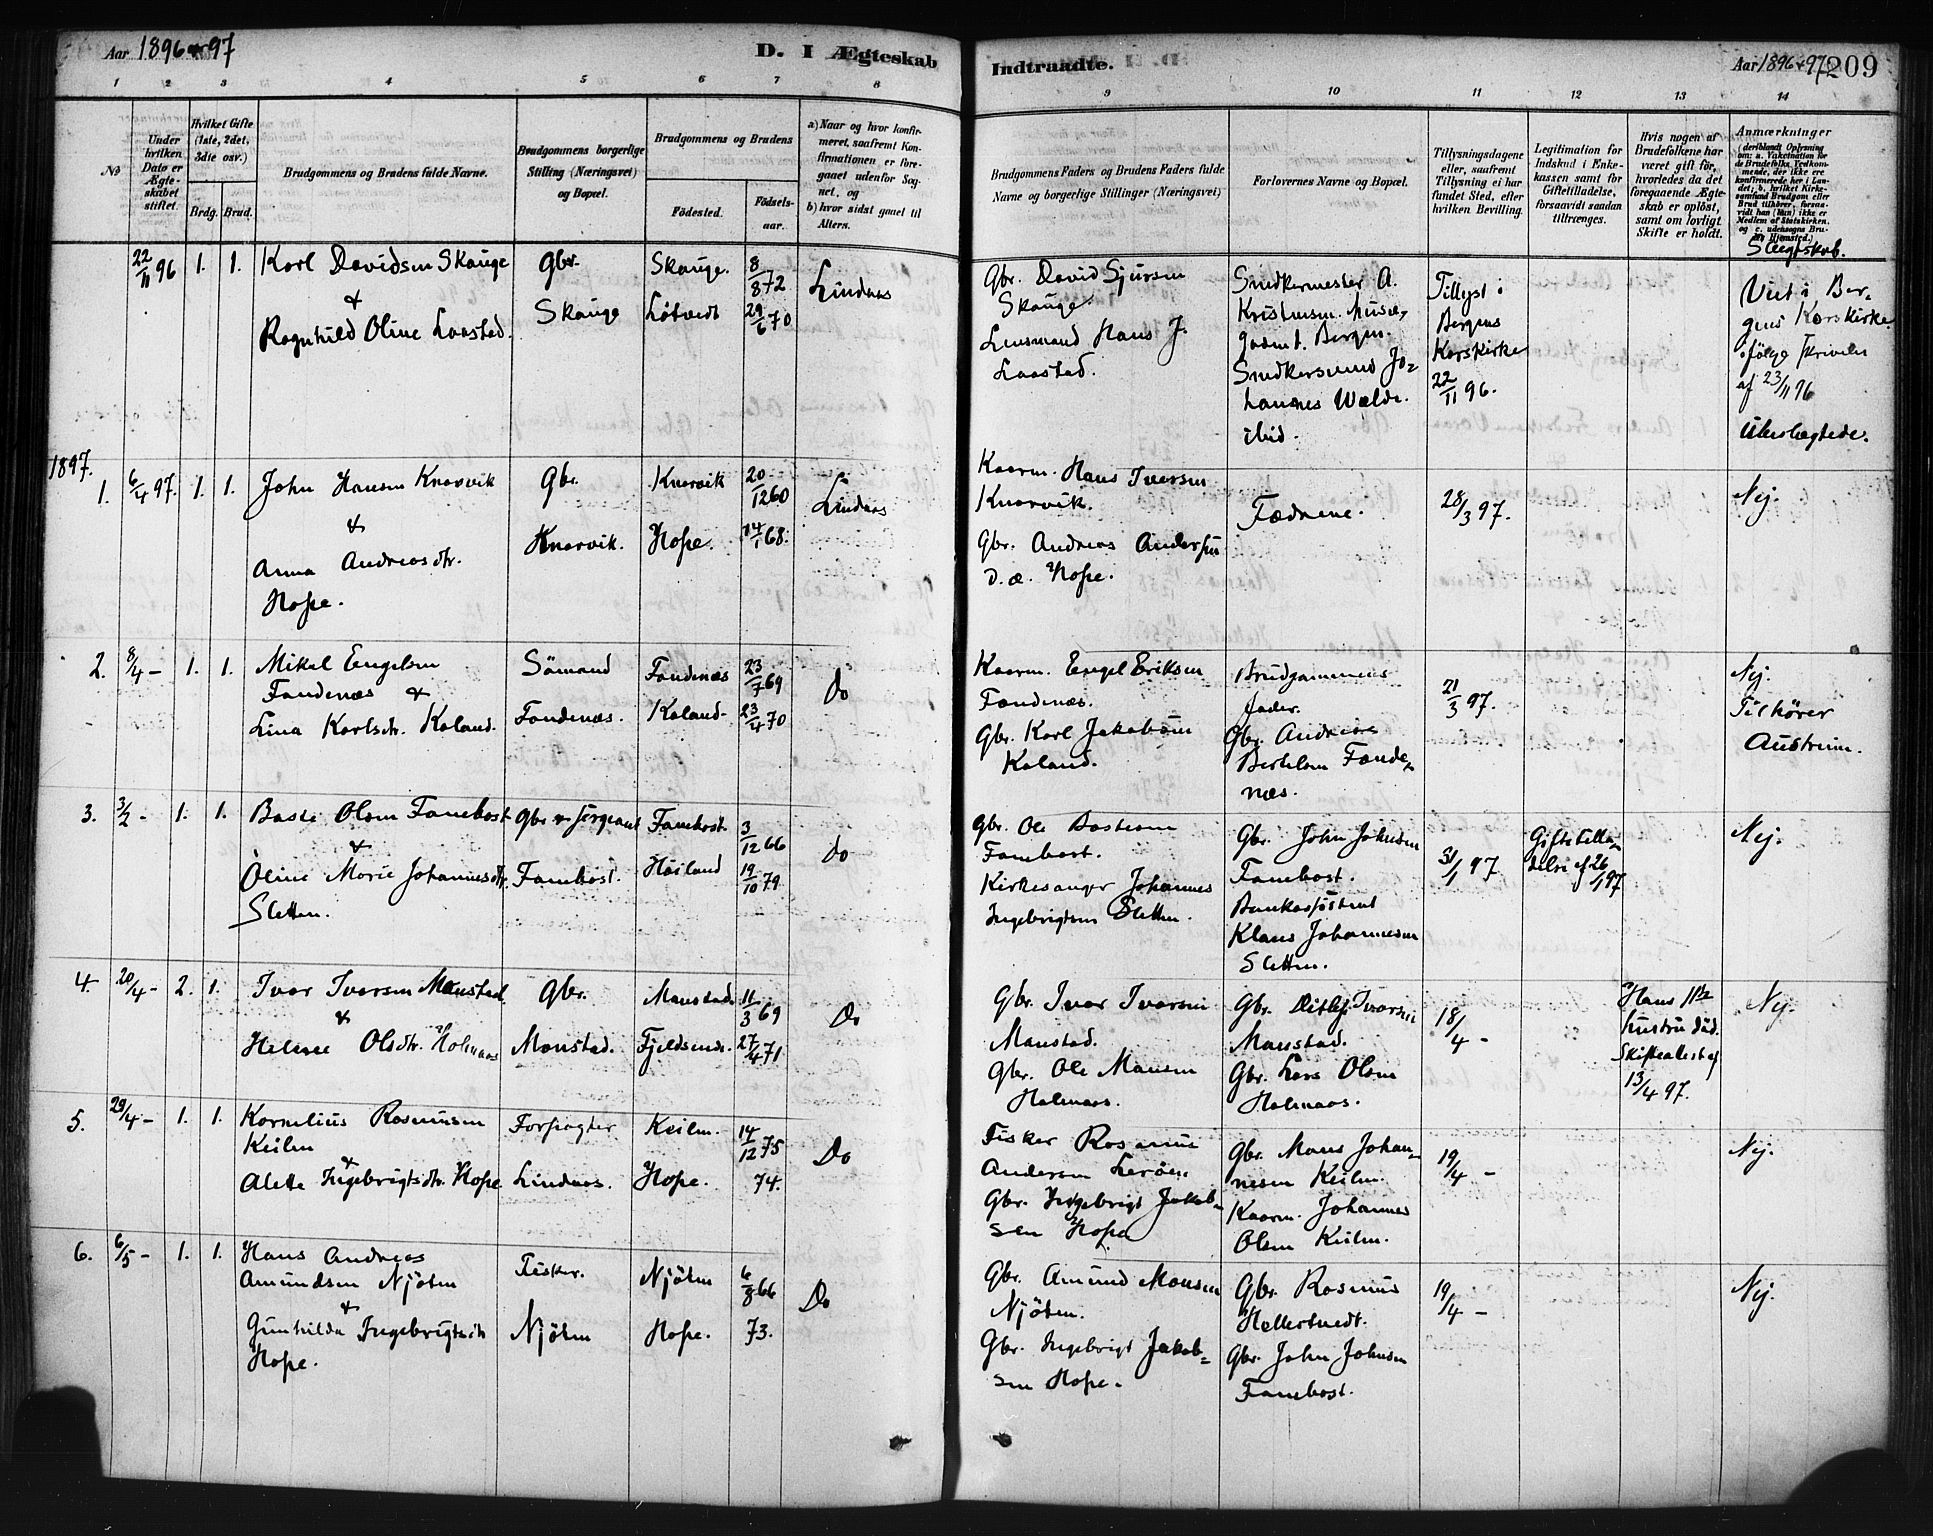 Aar 1896 & 97
D. I Ægteskab
Indtraadte.
Aar 1896 & 97
209
1 2 3 4 5 6 7 8 9 10 11 12 13 14
No
Under hvilken Dato er Ægteskabet stiftet.
Hvilket Gifte (1ste, 2det, 3die osv.)
Brdg. Brud.
Brudgommens og Brudens fulde Navne.
Brudgommens borgerlige Stilling (Næringsvei) og Bopæl.
Brudgommens og Brudens
Fødested.
Fødselsaar.
a) Naar og hvor konfirmeret, saafremt Konfirmationen er foregaaet udenfor Sognet, og
b) hvor sidst gaaet til Alters.
Brudgommens Faders og Brudens Faders fulde Navne og borgerlige Stillinger (Næringsvei)
Forlovernes Navne og Bopæl.
Tillysningsdagene eller, saafremt Tillysning ei har fundet Sted, efter hvilken Bevilling.
Legitimation for Indskud i Enkekassen samt for Giftetilladelse, forsaavidt saadan tiltrænges.
Hvis nogen af Brudefolkene har været gift før, hvorledes da det foregaaende Ægteskab er opløst, samt om lovligt Skifte er holdt.
Anmærkninger (deriblandt Oplysning om: a. Vaksination for de Brudefolks Vedkommende, der ikke ere konfirmerede her i Landet; b. hvilket Kirkesamfund Brudgom eller Brud tilhører, forsaavidt han (hun) ikke er Medlem af Statskirken, og c. udensogns Bruds Hjemsted.)
Slægtskab.
22/11 96
1. 1.
Karl Davidsen Skauge
&
Ragnhild Oline Laastad.
Gbr.
Skauge
Skauge.
Løtvedt
8/8 72
29/6 70
Lindaas
Gbr. David Sjursen
Skauge.
Lensmand Hans J.
Laastad.
Snedkermester A.
Kristensen
Bergen.
Snedkersvend Jo-
hannes Walde.
ibid.
Tillyst i
Bergens
Korskirke
22/11 96.
Viet i Ber-
gens Korskirke
ifølge skrivelse
af 23/11 96
Ubeslægtede.
1897.
1. 6/4 97. 1. 1.
John Hansen Knarvik
&
Anna Andreasdtr.
Hope.
Gbr.
Knarvik.
Knarvik
Hope.
20/12 60
14/1 68.
Lindaas
Kaarm. Hans Iversen
Knarvik.
Gbr. Andreas Andersen
d. æ. Hope.
Fædrene.
28/3 97.
Nej.
2. 8/4 – 1. 1.
Mikal Engelsen
Fondenæs &
Lina Karlsdtr. Kaland.
Sömand
Fondenæs.
Fondenæs
Kaland.
23/7 69
23/4 70
Do
Kaarm. Engel Eriksen
Fondenæs.
Gbr. Karl Jakobsen
Kaland.
Brudgommens
fader.
Gbr. Andreas
Bertelsen Fonde-
næs.
21/3 97.
Nej.
Tilhører
Austrheim.
3. 3/2 – 1. 1.
Baste Olsen Fanebost
&
Oline Marie Johannesdtr.
Sletten.
Gbr & sergeant
Fanebost.
Fanebost
Høiland
3/12 66
19/10 79
Do
Gbr. Ole Bastesen
Fanebost.
Kirkesanger Johannes
Ingebrigtsen Sletten.
Gbr. John Johnsen
Fanebost.
Bankassistent
Klaus Johannesen
Sletten.
31/1 97
Giftetilla-
delse af 26/1 97
Nej.
4. 20/4 – 2. 1.
Ivar Iversen Monstad
&
Helene Olsdtr. Holmaas
Gbr.
Monstad.
Monstad.
Fjeldsende.
11/3 69
27/4 71
Do
Gbr. Ivar Iversen
Monstad.
Gbr. Ole Monsen
Holmaas.
Gbr. Ditlef Iversen
Monstad.
Gbr. Lars Olsen
Holmaas.
18/4 –
Hans 1ste
hustru død.
Skifteattest af
13/4 97.
Nej.
5. 29/4 – 1. 1.
Kornelius Rasmussen
Keilen
&
Alette Ingebrigtsdtr. Hope
Forpagter
Lindaas.
Keilen.
Hope.
14/12 75
74.
Do
Fisker Rasmus
Andersen Lerøen
Gbr. Ingebrigt Jakob-
sen Hope
Gbr. Mons Johan-
nesen Keilen.
Kaarm. Johannes
Olsen Keilen.
19/4 –
Nej.
6. 6/5 – 1. 1.
Hans Andreas
Amundsen Njöten
&
Gunhilda Ingebrigtsdtr
Hope.
Fisker.
Njöten
Njöten
Hope.
6/8 66
73.
Do
Gbr. Amund Monsen
Njöten.
Gbr. Ingebrigt Jakob-
sen Hope.
Gbr. Rasmus
Helletvedt.
Gbr. John Johnsen
Fanebost.
19/4 –
Nej.